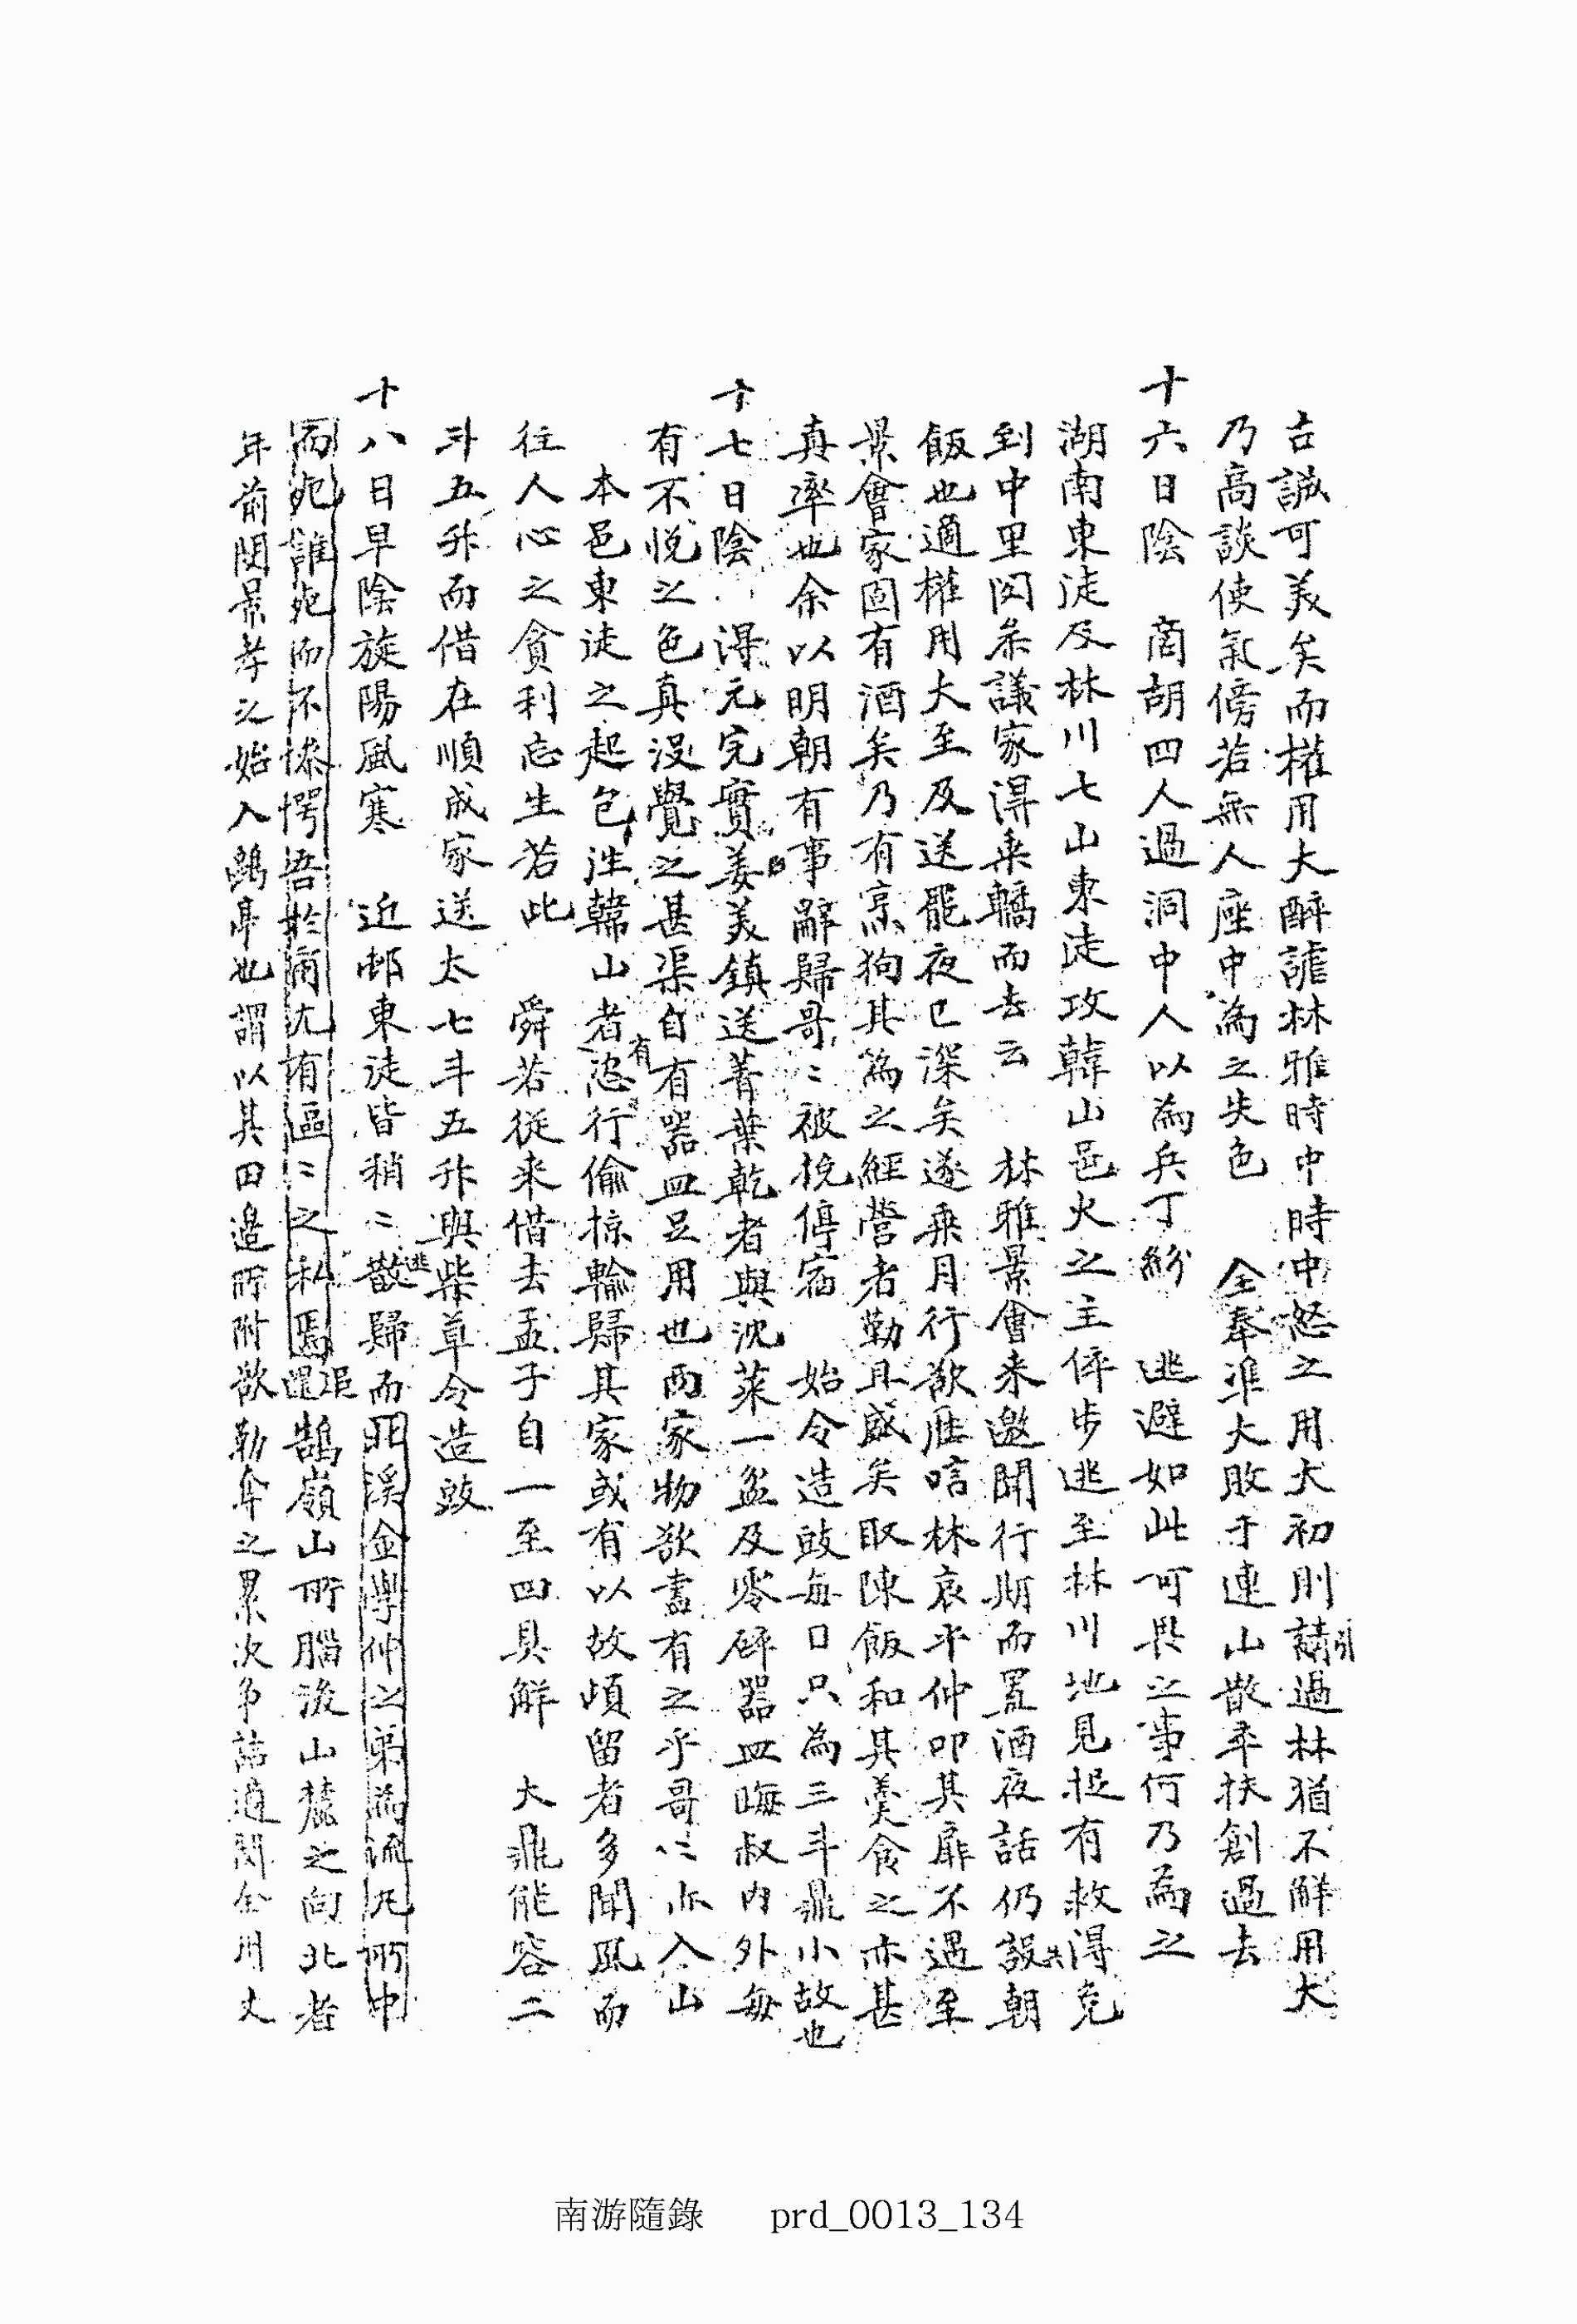 古誠可美矣而權用大醉謔林雅時中時中怒之用大初則請引過林猶不解用大
乃高談使氣傍若無人座中為之失色 全奉準大敗于連山散卒扶創過去
十六日陰 商胡四人過洞中人以為兵丁紛 逃避如此可畏之事何乃為之
湖南東徒及林川七山東徒攻韓山邑火之主倅步逃至林川地見捉有救得免
到中里囚糸議家得乗轎而去云 林雅景會来邀聞行期而置酒夜話仍設共朝
飯也適權用大至及送罷夜已深矣遂乗月行歌脏唁林哀平仲叩其扉不遇至
景會家固有酒矣乃有烹狗其為之經營者勤且盛矣取陳飯和其羹食之亦甚
真率也余以明朝有事辭歸哥〻被挽停宿 始令造豉每日只為三斗鼎小故也
十七日陰 得元完實姜美鎮送菁葉乾者與沈菜一盆及零碎器皿晦叔内外每
有不悦之色真没覺之甚渠自有器皿足用也两家物欲盡有之乎哥〻亦入山
本邑東徒之起包往韓山者有恣行偷掠輸歸其家或有以故頉留者多聞風而
往人心之貪利忘生若此 舜若從来借去盂子自一至四具鮮 大鼎能容二
斗五升而借在順成家送太七斗五升與柴草令造豉
十八日早陰旋陽風寒 近邨東徒皆稍〻散逃歸而北溪金學仲之弟為流丸所中
而死誰死而不悚愕吾於甬尤有區〻之私焉還拒鵠嶺山所腦後山麓之向北者
年前閔景孝之始入鷗亭也謂以其田邉所附欲勒奪之累次争詰適閔金川丈